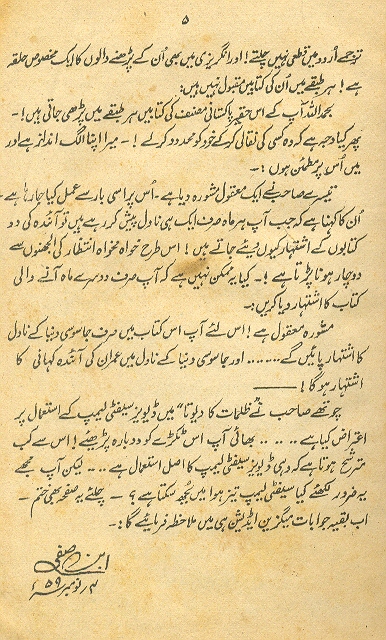 ۵
ترجمے اردو میں قطعی نہیں چلتے! اور انگریزی میں بھی اُن کے پڑھنے والوں کا ایک مخصوص حلقہ
ہے! ہر طبقے میں اُن کی کتابیں مقبول نہیں ہیں:
بحمداللہ آپ کے اس حقیر پاکستانی مصنف کی کتابیں ہر طبقے میں پڑھی جاتی ہیں!۔
پھر کیا وجہ ہے کہ وہ کسی کی نقالی کر کے خود کو محدود کر لے! ۔ میرا اپنا الگ انداز ہے اور
میں اُس پر مطمئن ہوں!۔
تیسرے صاحب نے ایک معقول مشورہ دیا ہے۔ اُس پر اسی بار سے عمل کیا جا رہا ہے۔
اُن کا کہنا ہے کہ جب آپ ہر ماہ صرف ایک ہی ناول پیش کر رہے ہیں تو آئندہ کی دو
کتابوں کے اشتہار کیوں دیئے جاتے ہیں! اس طرح خواہ مخواہ انتظار کی الجھنوں سے
دوچار ہونا پڑتا ہے!۔ کیا یہ ممکن نہیں ہے کہ آپ صرف دوسرے ماہ آنے والی
کتاب کا اشتہار دیا کریں:۔
مشورہ معقول ہے! اس لئے آپ اس کتاب میں صرف جاسوسی دنیا کے ناول
کا اشتہار پائیں گے ........ اور جاسوسی دنیا کے ناول میں عمران کی آئندہ کہانی کا
اشتہار ہو گا! ———
چوتھے صاحب نے "ظلمات کا دیوتا" میں ڈیویز سیفٹی لیمپ کے استعمال پر
اعتراض کیا ہے .... بھائی آپ اس ٹکڑے کو دوبارہ پڑھیئے! اس سے کب
مترشح ہوتا ہے کہ وہی ڈیویز سیفٹی لیمپ کا اصل استعمال ہے ... لیکن آپ مجھے
یہ ضرور لکھئے کیا سیفٹی لیمپ تیز ہوا میں بجھ سکتا ہے؟ ۔ چلئے یہ صفحہ بھی ختم ۔
اب بقیہ جوابات میگزین ایڈیشن ہی میں ملاحظہ فرمایئے گا:۔
ابن صفی
نومبر ۵۹ء